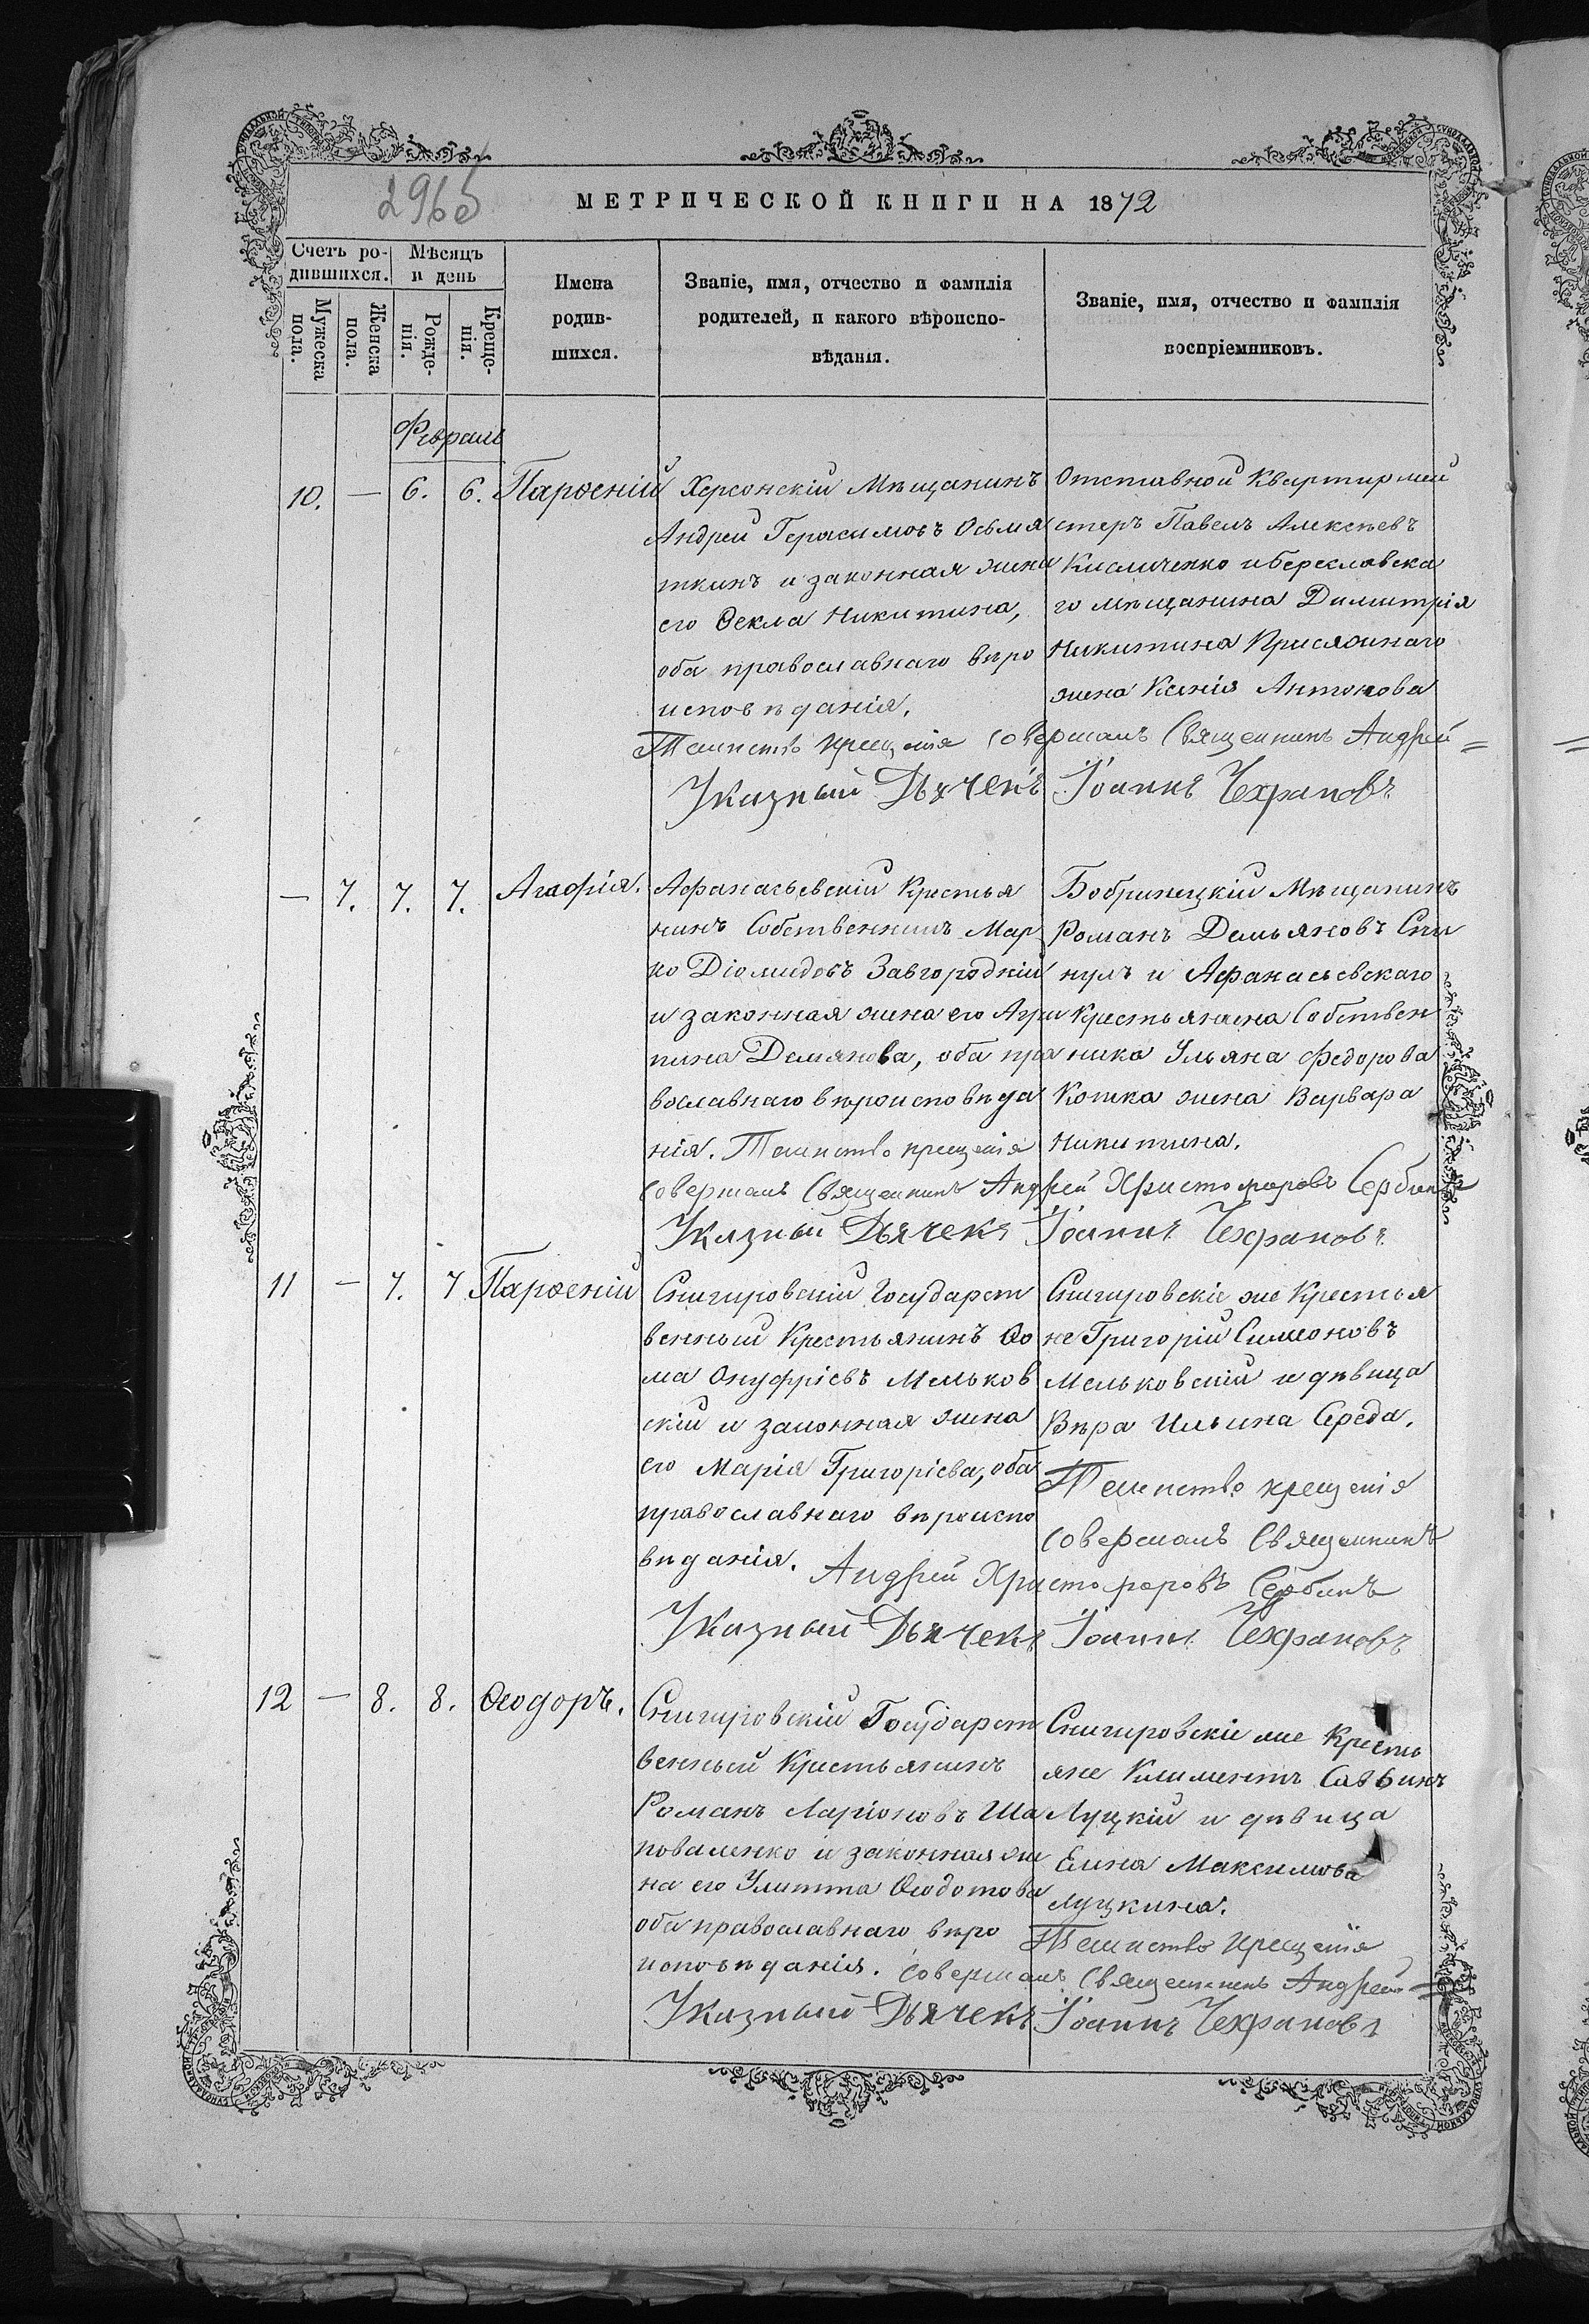 296об
МЕТРИЧЕСКОЙ КНИГИ НА 1872
Счетъ ро-
дившихся.
Мѣсяцъ
и день
Мужеска
пола.
Женска
пола.
Рожде-
нія.
Креще-
нія.
Имена
родив-
шихся.
Званіе, имя, отчество и фамилія
родителей, и какого вѣроиспо-
вѣданія.
Званіе, имя, отчество и фамилія
воспріемниковъ.
Февраль
10. — 6. 6. Парѳеній
Херсонскій Мѣщанинъ
Андрей Герасимовъ Осьмя
ткинъ и законная жена
его Ѳекла Никитина,
оба православнаго вѣро
исповѣданія.
Отставной Квартирмей
стеръ Павелъ Алексѣевъ
Кисличенко и Береславска
го мѣщанина Димитрія
Никитина Присяжнаго
жена Ксенія Антонова
Таинство крещенія совершалъ Священникъ Андрей =
Указный Дьячекъ Іоаннъ Чехрановъ
— 7. 7. 7. Агафія.
Афанасьевскій Крестья
нинъ Собственникъ Мар
ко Діомидовъ Завгородній
и законная жена его Агри
пина Демянова, оба пра
вославнаго вѣроисповѣда
нія. Таинство крещенія
Бобринецкій Мѣщанинъ
Романъ Демьяновъ Спи
нулъ и Афанасьевскаго
Крестьянина Собствен
ника Ульяна Федорова
Котка жена Варвара
Никитина.
совершалъ Священникъ Андрей Христофоровъ Сербинъ
Указный Дьячекъ Іоаннъ Чехрановъ
11 — 7. 7 Парѳеній
Снигировскій Государст
венный Крестьянинъ Ѳо
ма Онуфріевъ Мельков
скій и законная жена
его Марія Григоріева, оба
православнаго вѣроиспо
вѣданія.
Снигировскіе же Крестья
не Григорій Симеоновъ
Мельковскій и дѣвица
Вѣра Ильина Середа.
Таинство крещенія
совершалъ Священникъ
Андрей Христофоровъ Сербинъ
Указный Дьячекъ Іоаннъ Чехрановъ
12 — 8. 8. Ѳеодоръ.
Снигировскій Государст
венный Крестьянинъ
Романъ Ларіоновъ Ша
поваленко и законная же
на его Улитта Ѳеодотова
оба православнаго вѣро
исповѣданія.
Снигировскіе же Кресть
яне Климентъ Саввинъ
Луцкій и дѣвица
Елена Максимова
Луцкина.
Таинство крещенія
совершалъ Священникъ Андрей =
Указный Дьячекъ Іоаннъ Чехрановъ